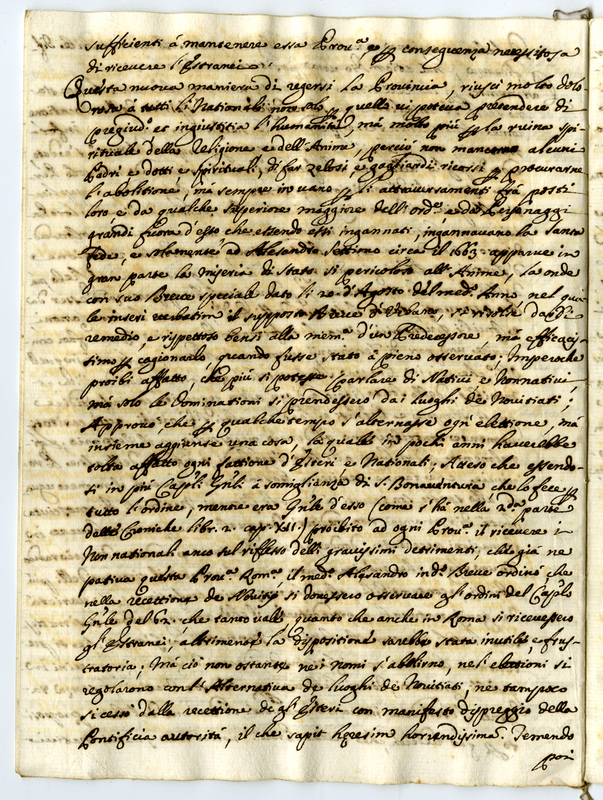 sufficienti á mantenere essa Prou.ª, e conseguenza necessitosa
di riceuere l'Estranei
Questa nuoua maniera di regersi la Prouincia, riusci molto dolo
rosa à tutti li Nationali non solo quella ui poteua pretendere di
pregiud.º et ingiustitia l'humanità, má molto più la ruina spi
rituale della Religione e dell'Anime, perciò non mancorno alcuni
Padri e dotti e spirituali, di far zelosi e gagliardi ricorsi procurarne
l'abolitione, má sempre in uano li attrauersamenti frà posti
loro e da qualche superiore maggiore dell'ord.e e da Personaggi
grandi fuora d'esso che essendo essi ingannati, ingannauano la Santa
Sede, e solamente ad Alesandro Settimo circa il 1663 apparue in
gran parte la miseria di stato si pericoloso all'Anime, la onde
con suo Breue speciale dato li 20 d'Agosto del med. Anno nel qua
le inserì uerbatim il supposto Breue d'Urbano, si risolse darli
remedio, e rispettoso bensi alla mem.ª d'un Predecessore, má efficacis
simo cagionarlo, quando fusse stato à pieno osseruato; Imperoche
proibi affatto, che più si potesse parlare di Natiui e Nonnatiui,
má solo le Dominationi si prendessero da i luoghi de Nouitiati;
Approuò che qualche tempo s'alternasse ogn'elettione, má
insieme aggiunse una cosa, la quale in pochi anni hauerebbe
tolta affatto ogni fattione d'Esteri e Nationali; Atteso che essendo
si in più Cap.li Gn.li à somiglianza di S. Bonauentura che lo fece
tutto l'ordine, mentre era Gn.le d'esso (come s'hà nella 2.da parte
delle Croniche libr. 2. cap. XII.) proibito ad ogni Prou.ª il riceuere i
Non nationali anco sul riflesso delli grauissimi detrimenti, che già ne
patiua questa Prou.ª Rom.ª il med. Alesandro in d.º Breue ordinò che
nella recettione de Nouitij si douessero osseruare gl'ordini del Cap.lo
Gn.le del 62. che tanto uale, quanto che anche in Roma si riceuessero
gl'Estranei, altrimente la dispositione sarebbe stata inutile, e frus
tratoria; Má ciò non ostante ne i nomi s'abolirno, ne l'elettioni si
regolarono con l'Alternatiua de luoghi de Nouitiati, ne tampoco
si cessò dalla recettione de gl'Esteri con manifesto dispreggio della
Pontificia autorità, il che sapit heresim horrendissima. Temendo
poi